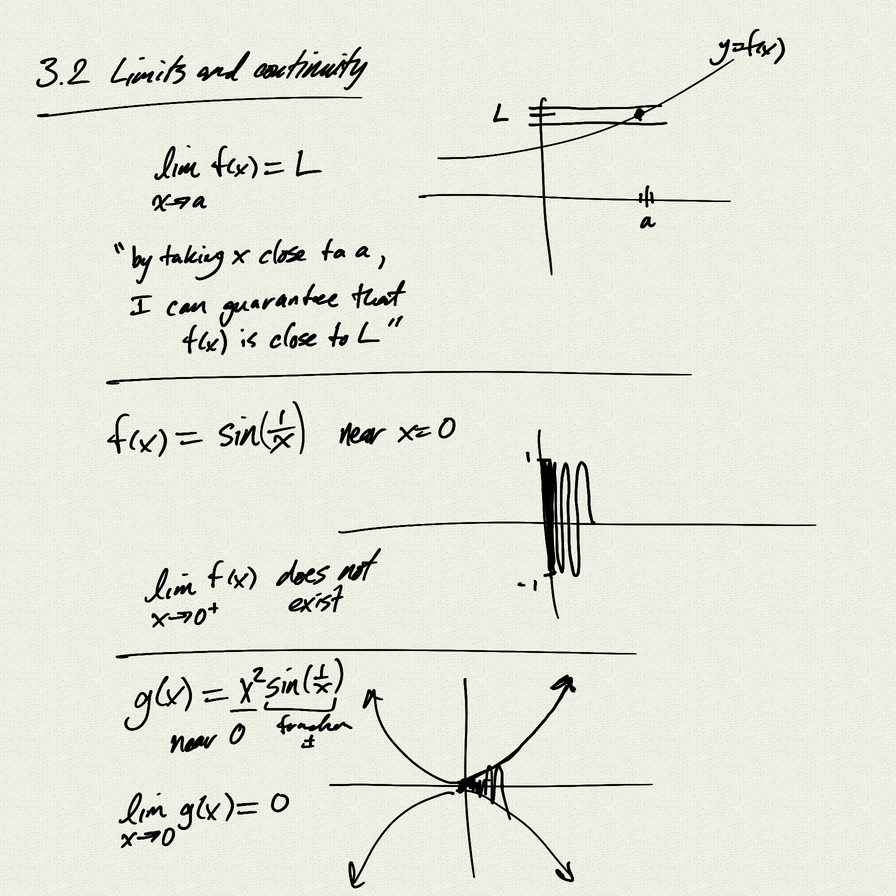 3.2 Limits and continuity
y=f(x)
L
a
lim f(x) = L
x→a
"by taking x close to a,
I can guarantee that
f(x) is close to L"
f(x) = sin(1/x) near x=0
1
-1
lim f(x) does not
x→0⁺ exist
g(x) = x² sin(1/x)
near 0 fraction
±
lim g(x) = 0
x→0